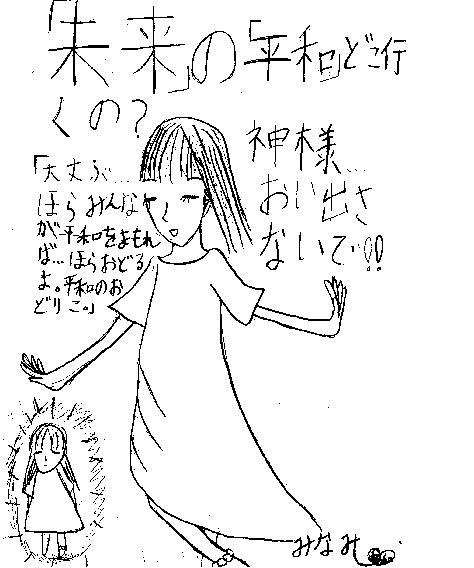 「未来」の「平和」どこ行
くの？
神様…
おい出さ
ないで!!
「大丈ぶ…
ほらみんな
が平和をまもれ
ば…ほらおどる
よ。平和のお
どりこ。」
みなみ